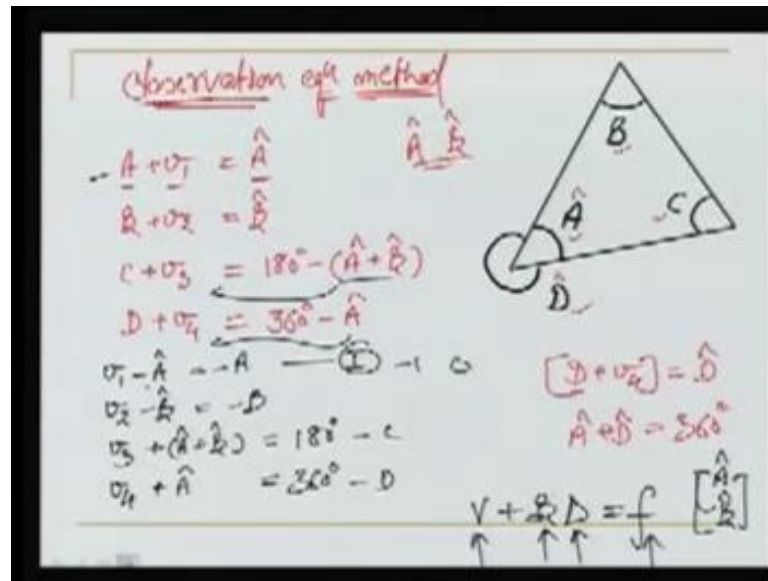 Observation eqn method
A + v1 = Â
B + v2 = B̂
C + v3 = 180° - (Â + B̂)
D + v4 = 360° - Â
v1 - Â = -A — (I) -1 0
v2 - B̂ = -B
v3 + (Â + B̂) = 180° - C
v4 + Â = 360° - D
Â B̂
B
Â
C
D̂
[D + v4] = D̂
Â + D̂ = 360°
V + B Δ = f
[Â
B̂]